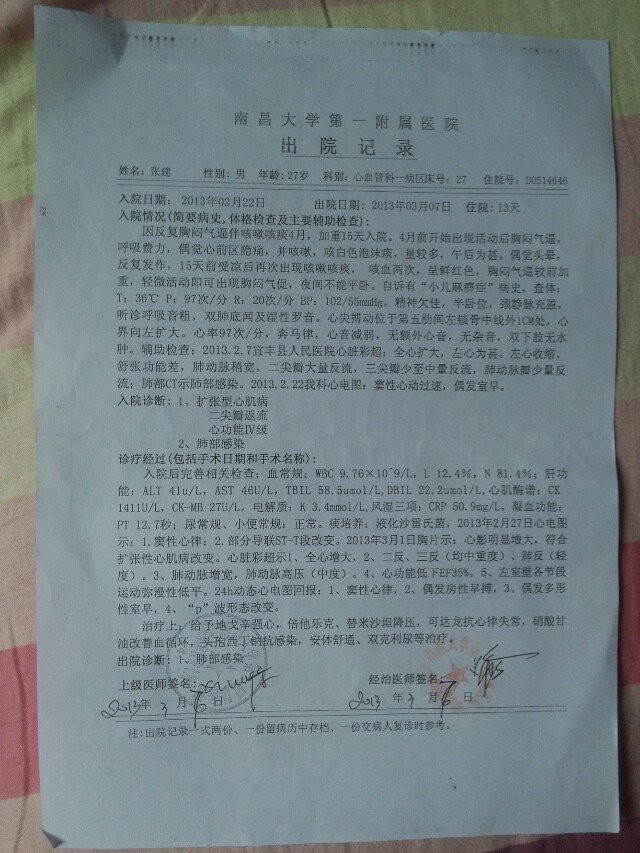 南昌大学第一附属医院
出院记录
姓名:张建 性别:男 年龄:27岁 科别:心血管科一病区床号:27 住院号:D0514646
入院日期: 2013年02月22日 出院日期: 2013年03月07日 住院:13天
入院情况(简要病史,体格检查及主要辅助检查):
因反复胸闷气逼伴咳嗽咳痰4月,加重15天入院。4月前开始出现活动后胸闷气逼,
呼吸费力,偶觉心前区隐痛,并咳嗽,咳白色泡沫痰,量较多,午后为甚,偶觉头晕,
反复发作,15天前受凉后再次出现咳嗽咳痰, 咳血两次,呈鲜红色,胸闷气逼较前加
重,轻微活动即可出现胸闷气促,夜间不能平卧。自诉有"小儿麻痹症"病史,查体:
T:36℃ P:97次/分 R:20次/分 BP:102/55mmHg,精神欠佳,半卧位,颈静脉充盈,
听诊呼吸音粗,双肺底闻及湿性罗音。心尖搏动位于第五肋间左锁骨中线外1CM处,心
界向左扩大。心率97次/分,奔马律,心音减弱,无额外心音,无杂音,双下肢无水
肿。辅助检查:2013.2.7宜丰县人民医院心脏彩超:全心扩大,左心为甚。左心收缩、
舒张功能差,肺动脉稍宽,二尖瓣大量反流,三尖瓣少至中量反流,肺动脉瓣少量反
流;肺部CT示肺部感染。2013.2.22我科心电图:窦性心动过速,偶发室早。
入院诊断:1、扩张型心肌病
二尖瓣返流
心功能Ⅳ级
2、肺部感染
诊疗经过(包括手术日期和手术名称):
入院后完善相关检查:血常规:WBC 9.76×10^9/L,L 12.4%,N 81.4%;肝功
能:ALT 41u/L,AST 46U/L,TBIL 58.5umol/L,DBIL 22.2umol/L,心肌酶谱:CK
1411U/L,CK-MB 27U/L,电解质:K 3.4mmol/L,风湿三项:CRP 50.9mg/L,凝血功能:
PT 12.7秒;尿常规、小便常规:正常。痰培养:液化沙雷氏菌,2013年2月27日心电图
示:1.窦性心律;2.部分导联ST-T段改变。2013年3月1日胸片示:心影明显增大,符合
扩张性心肌病改变。心脏彩超示1、全心增大,2、二反、三反(均中重度)、肺反(轻
度)。3、肺动脉增宽,肺动脉高压(中度)。4、心功能低下EF35%。5、左室壁各节段
运动弥漫性低平。24h动态心电图回报:1、窦性心律,2、偶发房性早搏,3、偶发多形
性室早,4、"p"波形态改变。
治疗上:给予地戈辛强心,倍他乐克、替米沙坦降压,可达龙抗心律失常,硝酸甘
油改善血循环,头孢西丁钠抗感染,安体舒通、双克利尿等治疗。
出院诊断:1、肺部感染
上级医师签名: 经治医师签名:
2013年 3 月 6 日 2013 年 3 月 6 日
注:出院记录一式两份、一份留病历中存档、一份交病人复诊时参考。